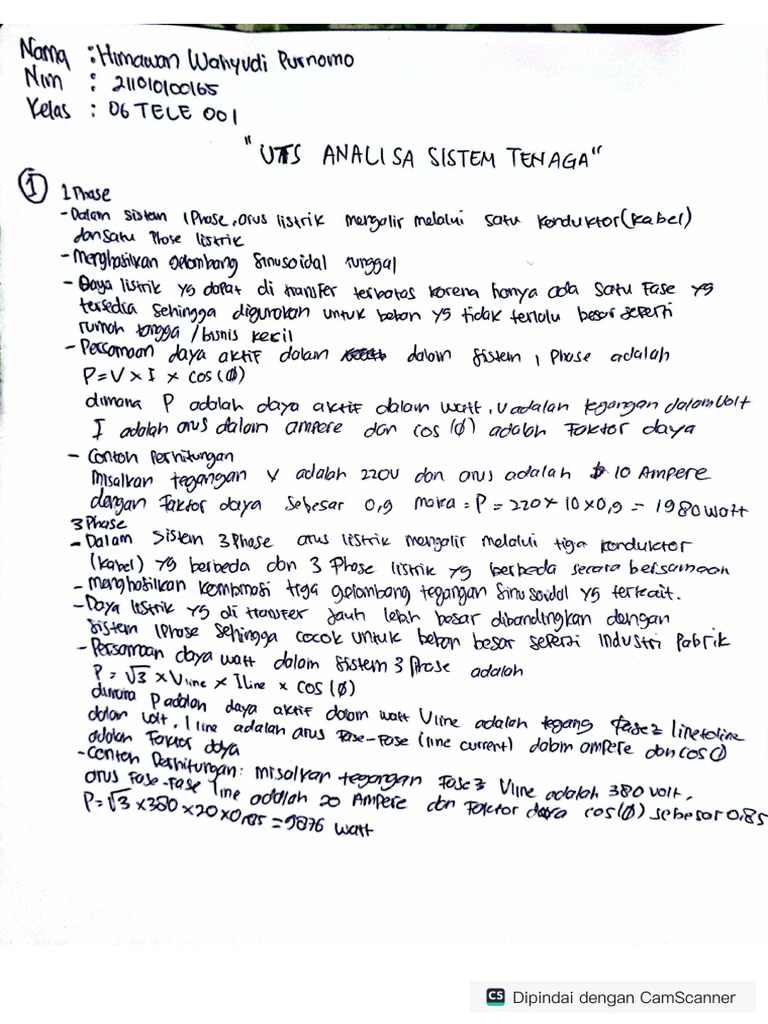 Nama : Himawan Wahyudi Purnomo
Nim : 211010100165
Kelas : 06 TELE 001
"UTS ANALISA SISTEM TENAGA"
1 1 Phase
- Dalam sistem 1 Phase, arus listrik mengalir melalui satu konduktor (kabel)
dan satu Phose listrik
- Menghasilkan gelombang sinusoidal tunggal
- Daya listrik yg dapat di transfer terbatas karena hanya ada satu Fase yg
tersedia sehingga digunakan untuk beban yg tidak terlalu besar seperti
rumah tangga / bisnis kecil
- Persamaan daya aktif dalam dalam sistem 1 Phase adalah
P = V x I x cos (Ø)
dimana P adalah daya aktif dalam watt, V adalah tegangan dalam Volt
I adalah arus dalam ampere dan cos (Ø) adalah Faktor daya
- Contoh Perhitungan
Misalkan tegangan V adalah 220V dan arus adalah 10 Ampere
dengan Faktor daya sebesar 0,9 maka = P = 220 x 10 x 0,9 = 1980 watt
3 Phase
- Dalam sistem 3 Phase arus listrik mengalir melalui tiga konduktor
(kabel) yg berbeda dan 3 Phase listrik yg berbeda secara bersamaan
- menghasilkan kombinasi tiga gelombang tegangan sinusoidal yg terkait.
- Daya listrik yg di transfer jauh lebih besar dibandingkan dengan
sistem 1 Phase sehingga cocok untuk beban besar seperti industri Pabrik
- Persamaan daya watt dalam sistem 3 Phase adalah
P = √3 x Vline x Iline x cos (Ø)
dimana P adalah daya aktif dalam watt Vline adalah tegang fase2 linetoline
dalam volt, I line adalah arus Fase-Fase (line current) dalam ampere dan cos Ø
adalah Faktor daya
- Contoh Perhitungan: misalkan tegangan Fase3 Vline adalah 380 volt,
arus Fase-Fase Iline adalah 20 Ampere dan Faktor daya cos (Ø) sebesar 0,85
P = √3 x 380 x 20 x 0,85 = 9876 watt
CS Dipindai dengan CamScanner